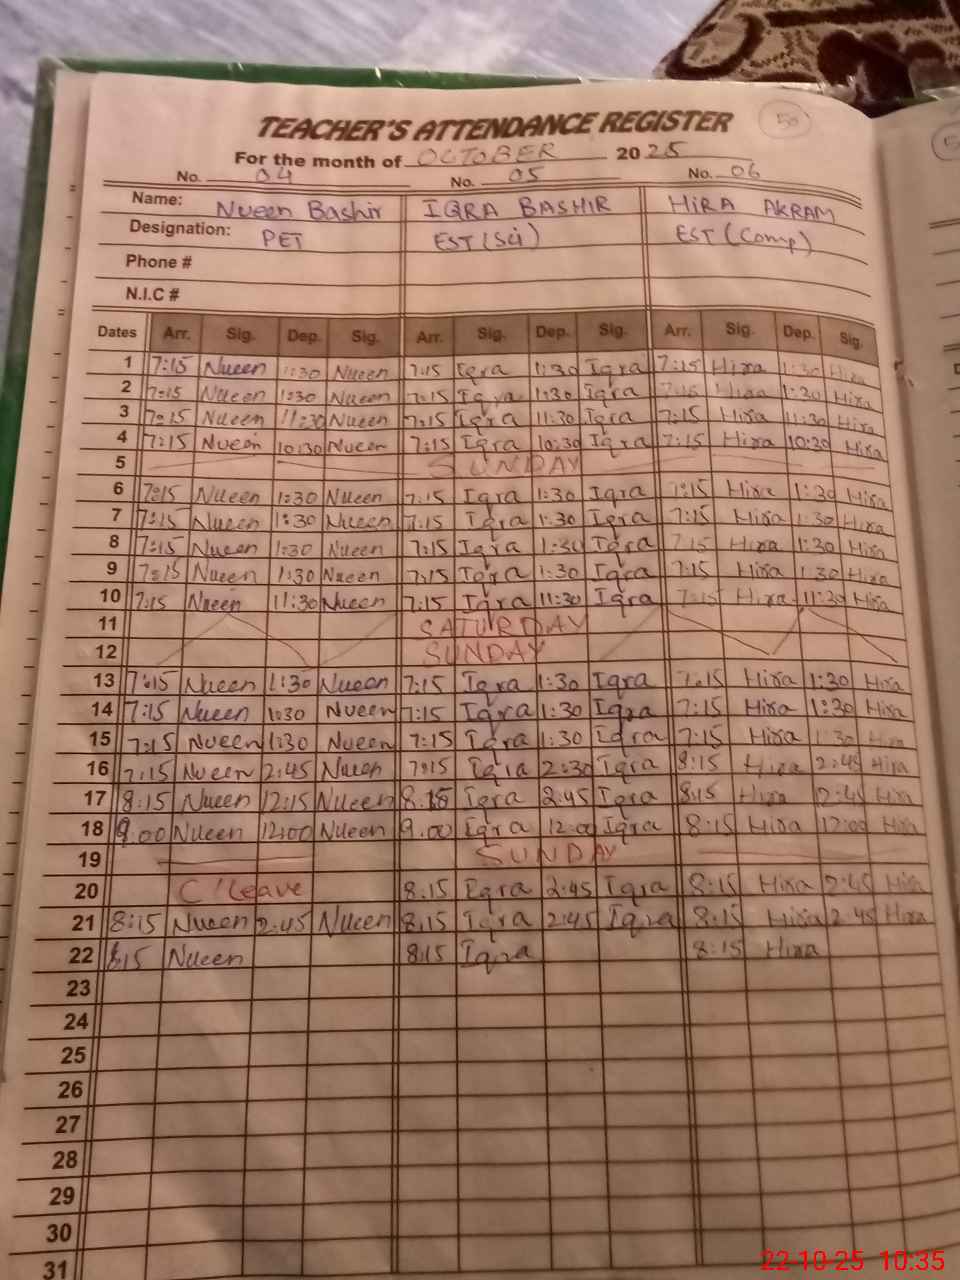 TEACHER'S ATTENDANCE REGISTER 50
For the month of OCTOBER 2025
No. 04 No. 05 No. 06
Name: Nueen Bashir IQRA BASHIR HiRA AKRAM
Designation: PET EST (Sci) EST (Comp)
Phone #
N.I.C #
Dates Arr. Sig. Dep. Sig. Arr. Sig. Dep. Sig. Arr. Sig. Dep. Sig.
1 7:15 Nueen 1:30 Nueen 7:15 Iqra 1:30 Iqra 7:15 Hira 1:30 Hira
2 7:15 Nueen 1:30 Nueen 7:15 Iqra 1:30 Iqra 7:15 Hira 1:30 Hira
3 7:15 Nueen 11:30 Nueen 7:15 Iqra 11:30 Iqra 7:15 Hira 11:30 Hira
4 7:15 Nueen 10:30 Nueen 7:15 Iqra 10:30 Iqra 7:15 Hira 10:30 Hira
5 SUNDAY
6 7:15 Nueen 1:30 Nueen 7:15 Iqra 1:30 Iqra 7:15 Hira 1:30 Hira
7 7:15 Nueen 1:30 Nueen 7:15 Iqra 1:30 Iqra 7:15 Hira 1:30 Hira
8 7:15 Nueen 1:30 Nueen 7:15 Iqra 1:30 Iqra 7:15 Hira 1:30 Hira
9 7:15 Nueen 1:30 Nueen 7:15 Iqra 1:30 Iqra 7:15 Hira 1:30 Hira
10 7:15 Nueen 11:30 Nueen 7:15 Iqra 11:30 Iqra 7:15 Hira 11:30 Hira
11 SATURDAY
12 SUNDAY
13 7:15 Nueen 1:30 Nueen 7:15 Iqra 1:30 Iqra 7:15 Hira 1:30 Hira
14 7:15 Nueen 1:30 Nueen 7:15 Iqra 1:30 Iqra 7:15 Hira 1:30 Hira
15 7:15 Nueen 1:30 Nueen 7:15 Iqra 1:30 Iqra 7:15 Hira 1:30 Hira
16 7:15 Nueen 2:45 Nueen 7:15 Iqra 2:30 Iqra 8:15 Hira 2:45 Hira
17 8:15 Nueen 12:15 Nueen 8:15 Iqra 2:45 Iqra 8:15 Hira 2:45 Hira
18 9:00 Nueen 12:00 Nueen 9:00 Iqra 12:00 Iqra 8:15 Hira 12:00 Hira
19 SUNDAY
20 C/Leave 8:15 Iqra 2:45 Iqra 8:15 Hira 2:45 Hira
21 8:15 Nueen 2:45 Nueen 8:15 Iqra 2:45 Iqra 8:15 Hira 2:45 Hira
22 8:15 Nueen 8:15 Iqra 8:15 Hira
23
24
25
26
27
28
29
30
31
22-10-25 10:35